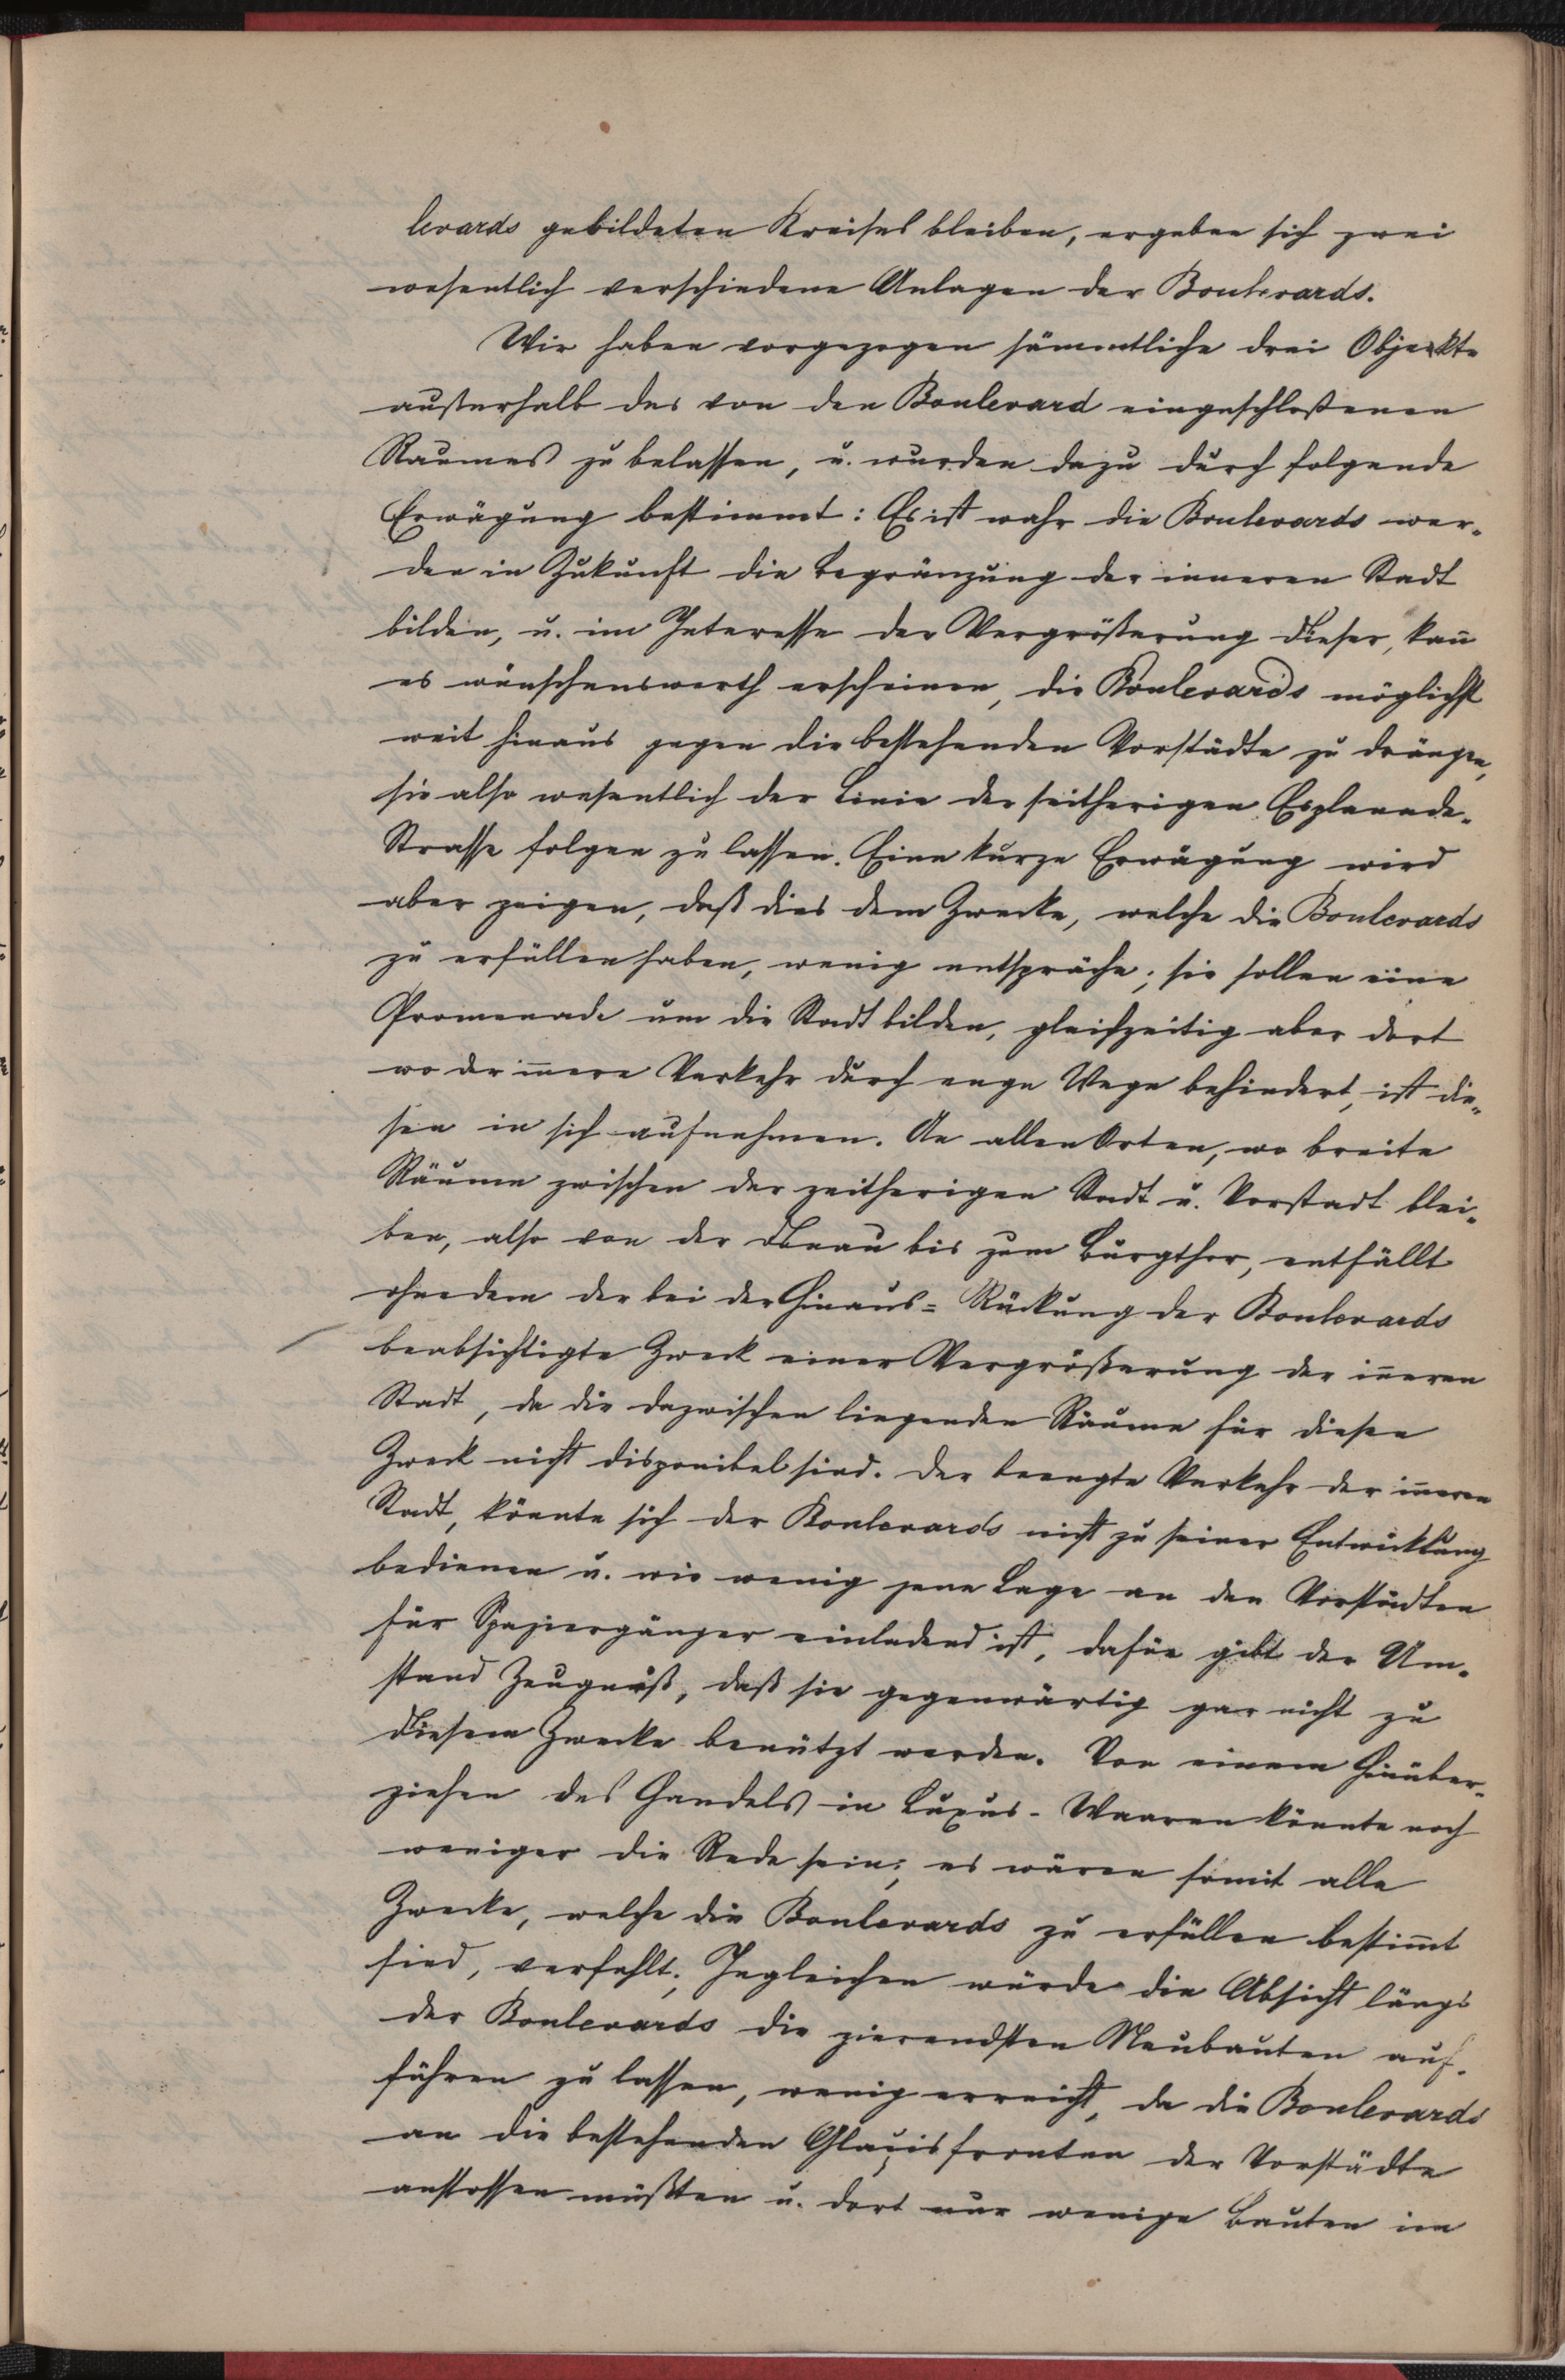 levards gebildeten Kreises bleiben, ergeben sich zwei
wesentlich verschiedene Anlagen der Boulevards.
Wir haben vorgezogen sämmtliche drei Objekte
außerhalb des von den Boulevard eingeschloßenen
Raumes zu belassen, u. wurden dazu durch folgende
Erwägung bestimmt: Es ist wahr die Boulevards wer-
den in Zukunft die Begränzung der inneren Stadt
bilden, u. im Interesse der Vergrößerung dieser, kan̄
es wünschenswerth erscheinen, die Boulevards möglichst
weit hinaus gegen die bestehenden Vorstädte zu drängen,
sie also wesentlich der Linie der seitherigen Esplanade-
Strasse folgen zu lassen. Eine kurze Erwägung wird
aber zeigen, daß dies dem Zwecke, welche die Boulevards
zu erfüllen haben, wenig entspräche; sie sollen eine
Promenade um die Stadt bilden, gleichzeitig aber dort
wo der in̄ere Verkehr durch enge Wege behindert, ist die-
sen in sich aufnehmen. An allen Orten, wo breite
Räume zwischen der zeitherigen Stadt u. Vorstadt blei-
ben, also von der Donau bis zum Burgthor, entfällt
ohnedem der bei der Hinaus= Rückung der Boulevards
beabsichtigte Zweck einer Vergrößerung der in̄eren
Stadt, da die dazwischen liegenden Räume für diesen
Zweck nicht disponibel sind. Der beengte Verkehr der in̄eren
Stadt, könnte sich der Boulevards nicht zu seiner Entwicklung
bedienen u. wie wenig jene Lage an den Vorstädten
für Spaziergänger einladend ist, dafür gibt der Um-
stand Zeugniß, daß sie gegenwärtig gar nicht zu
diesem Zwecke benützt werden. Von einem Hinüber-
ziehen des Handels in Luxus-Waaren könnte noch
weniger die Rede sein; es wären somit alle
Zwecke, welche die Boulevards zu erfüllen bestim̄t
sind, verfehlt; Ingleichen würde die Absicht längs
der Boulevards die zierendsten Neubauten auf-
führen zu lassen, wenig erreicht, da die Boulevards
an die bestehenden Glaçisfronten der Vorstädte
anstossen müßten u. dort nur wenige Bauten im